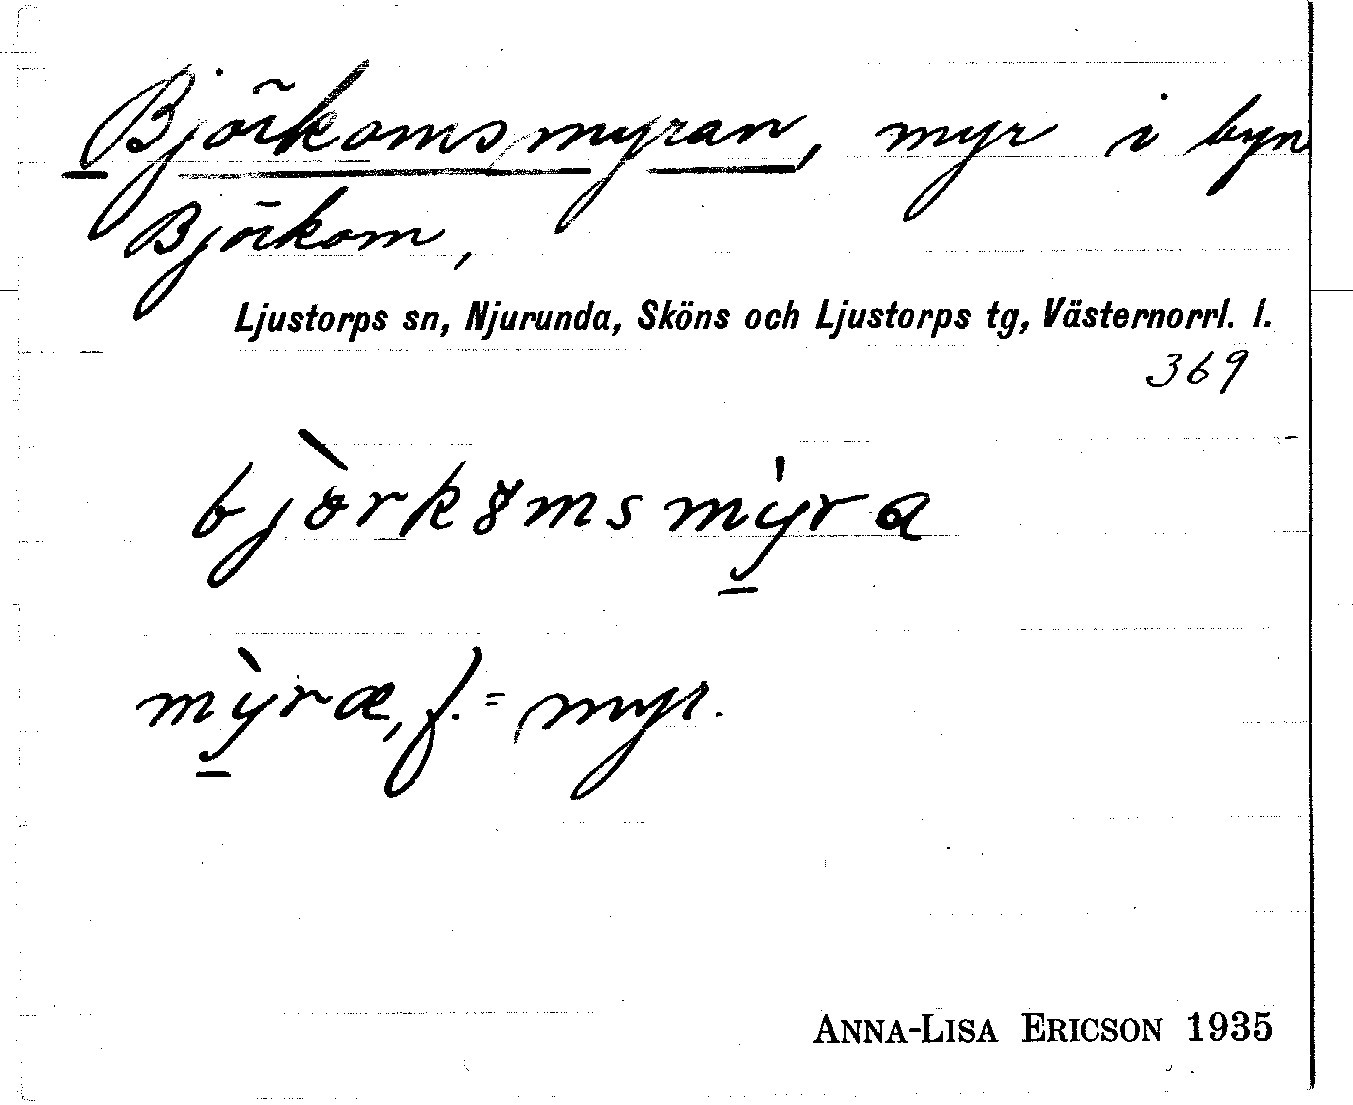 Björkomsmyran, myr i byn
Björkom,
Ljustorps sn, Njurunda, Sköns och Ljustorps tg, Västernorrl. l.
369
bjòrkømsmýra
mỳræ, f. = myr.
ANNA-LISA ERICSON 1935